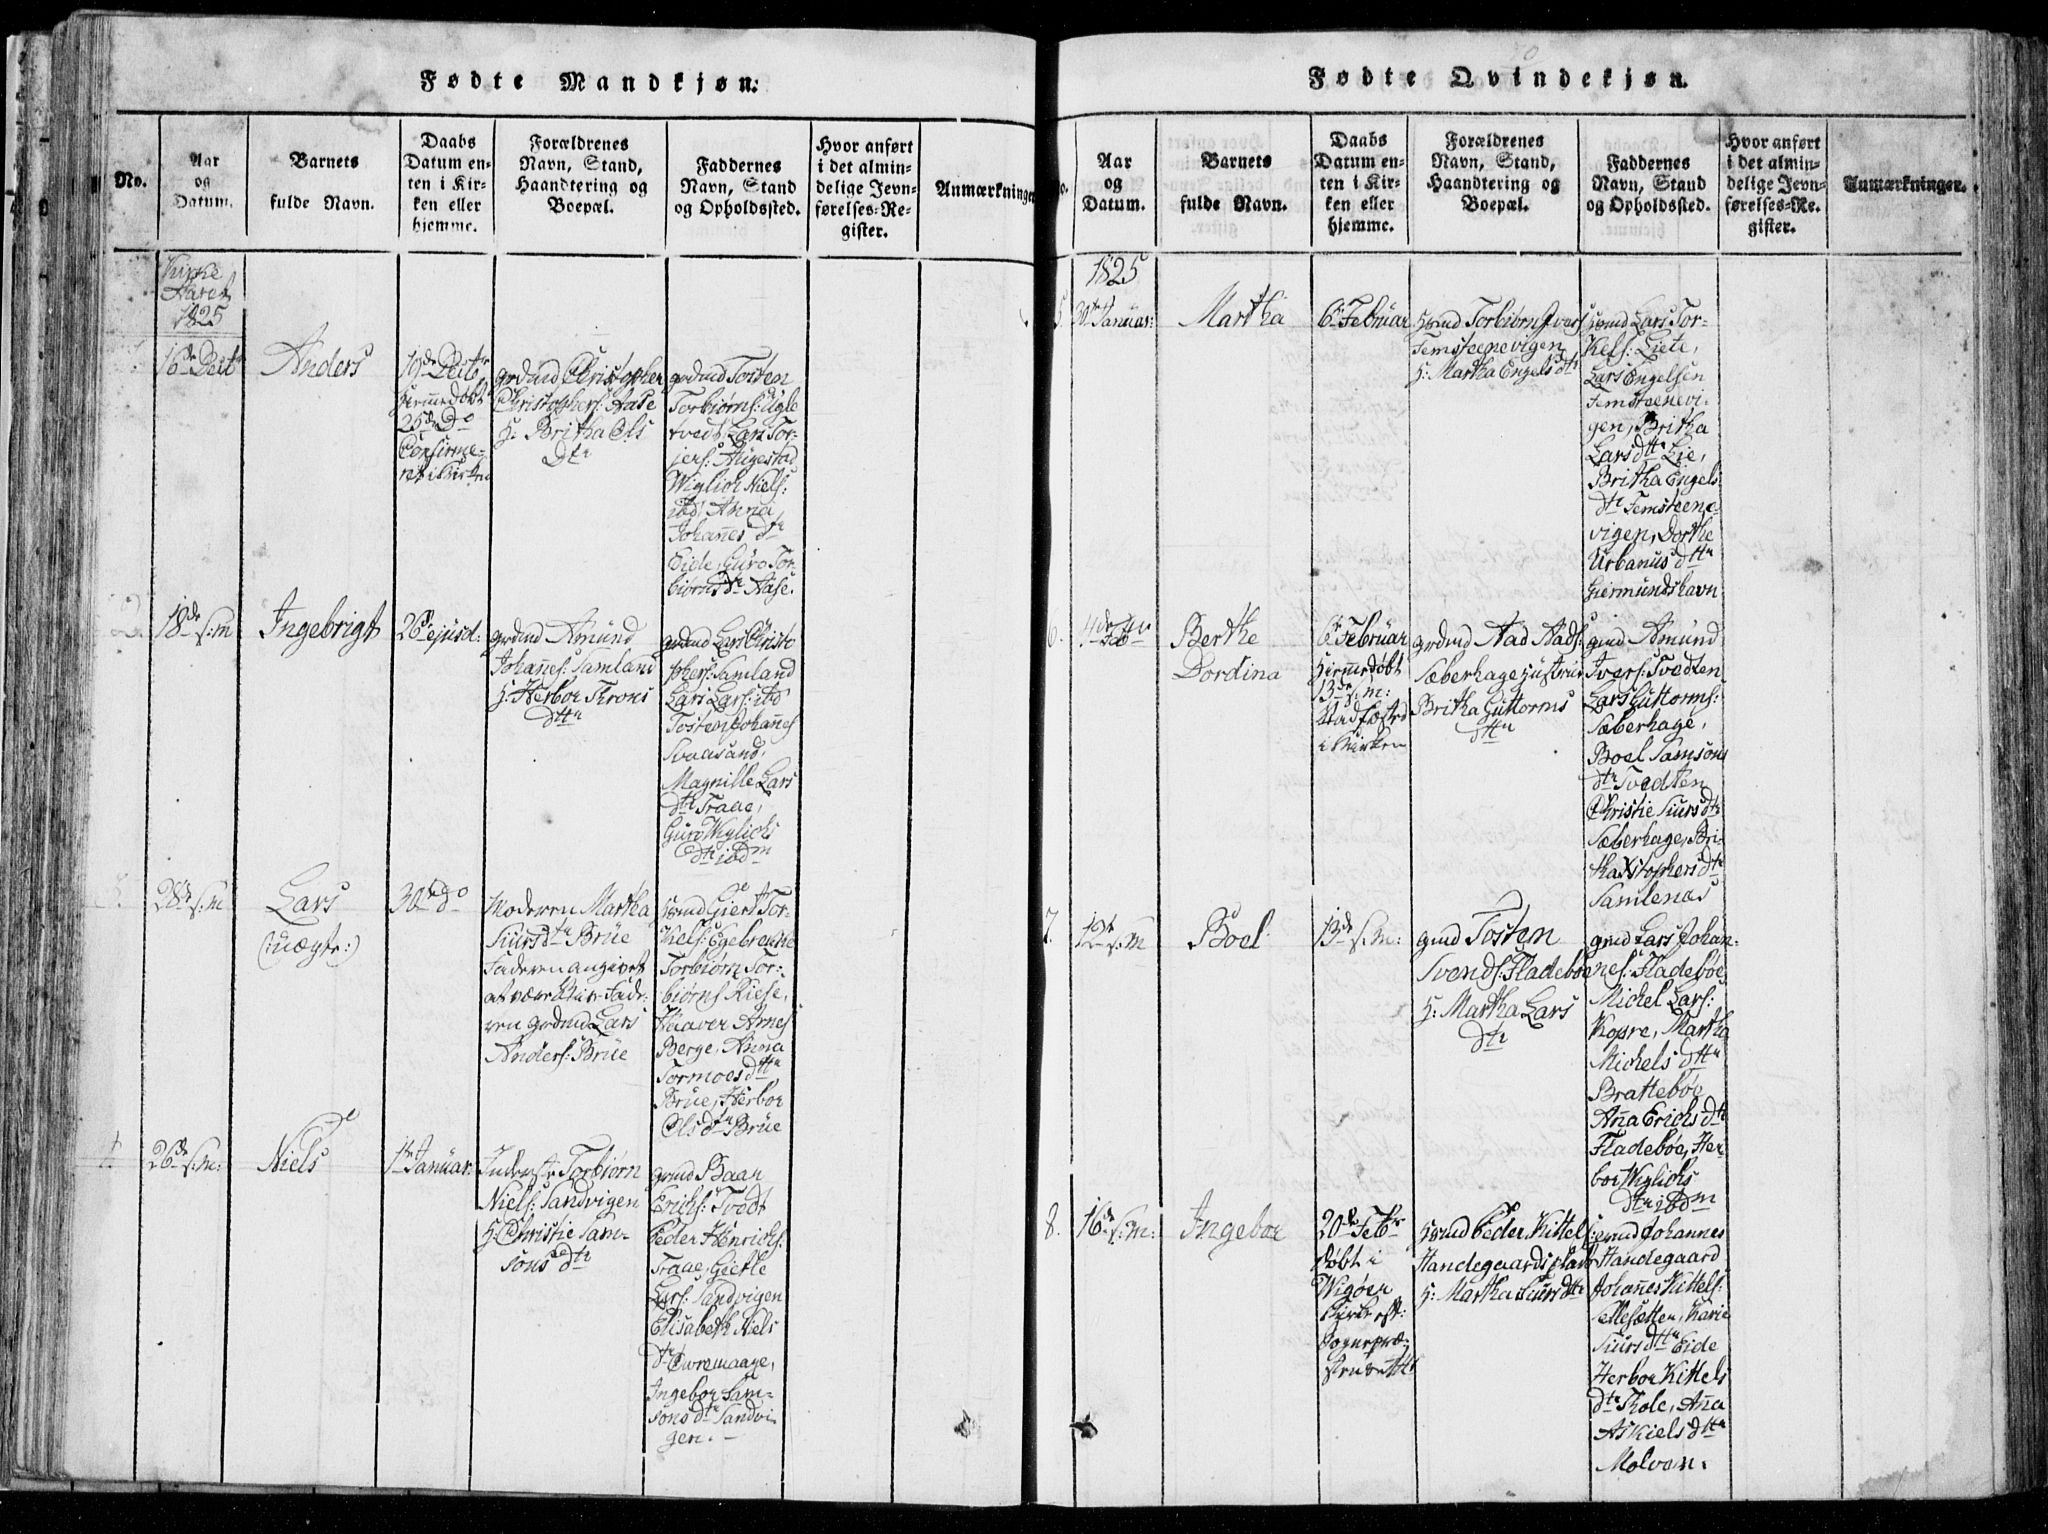 Fødte Mandkjøn:
No.
Aar
og
Datum.
Barnets
fulde Navn.
Daabs
Datum en-
ten i Kir-
ken eller
hjemme.
Forældrenes
Navn, Stand,
Haandtering og
Boepæl.
Faddernes
Navn, Stand
og Opholdssted.
Hvor anført
i det almin-
delige Jevn-
førelses-Re-
gister.
Anmærkninger
Kirke
Aaret
1825
16de
Anders
19de
hiemmedøbt
25de Do
Confirme-
ret i Kirken
grdmd Christopher
Christophers: Aase
H: Britha Ols
Dtr
grdmd Tosten
Torbiørns: Ugle
tvedt, Lars Tor-
jers: Augestad
Wiglich Niels:
ibd, Anna
Johañes dtr
Eide, Guro Tor-
biørns dtr Aase.
2.
18de s:m
Ingebrigt
26de ejusd:
grdmd Amund
Johañes: Samland
H: Herbor Trons
dttr
grdmd Lars Christo
phers: Samland
Lars Lars: ibd
Tosten Johañes
Svaasand,
Magnille Lars
dtr Traae,
Guro Wiglichs
dtr ibdm
3.
28de s:m
Lars
(:uægte:)
30te do
Moderen Martha
Siurs dtr Brüe
Faderen angivet
at være
ren grdmd Lars
Anders: Brüe
Hsmd Giert Tor-
kels: Egebrekke
Torbiørn Tor-
biørns Riese,
Haaver Arnes
Berge, Anna
Tormoes dttr
Brüe, Herbor
Ols dtr Brüe
4.
26de s:m:
Niels
1te Januar.
Inderste Torbiørn
Niels: Sandvigen
H: Christie Sam-
sons dtr
grmd Baar
Erichs: Tvedt
Peder Henrichs:
Traae, Giertle
Lars: Sandvigen
Elisabeth Niels
dtr Øvremaage,
Ingebor Sam-
sons dtr Sandvi-
gen. -
Fødte Qvindekjøn.
No.
Aar
og
Datum.
Barnets
fulde Navn.
Daabs
Datum en-
ten i Kir-
ken eller
hjemme.
Forældrenes
Navn, Stand,
Haandtering og
Boepæl.
Faddernes
Navn, Stand
og Opholdssted.
Hvor anført
i det almin-
delige Jevn-
førelses-Re-
gister.
Anmærkninger.
1825
5.
Januar:
Martha
6te Februar
Hsmd Torbiørn Ivers
Femsteenevigen
H: Martha Engels dtr
Hsmd Lars Tor-
kels: Liete,
Lars Engelsen
Femsteenevi-
gen, Britha
Lars dttr Lie,
Britha Engels
dtr Femsteene-
vigen, Dorthe
Urbanus dttr
Giermundshavn
6.
4de
Berthe
Dordina
6te Februar
hiemmedøbt
13de s:m:
Stadfæsted
i Kirken
grdmd Aad Aads:
Sæberhage Hustrue
Britha Guttorms
dttr
gmd Amund
Ivers: Tvedten
Lars Guttorms:
Sæberhage,
Boel Samsons
dtr Tvedten
Christie Siurs dtr
Sæberhage, Bri-
tha Xstophers dtr
Samlenæs
7.
12te s:m
Boel
13de s:m:
gmd Tosten
Svends: Fladebøe
H: Martha Lars
dtr
gmd Lars Johan-
nes: Fladebøe,
Michel Lars:
Kopre, Martha
Michels dttr
Brattebøe
Aña Erichs dtr
Fladebøe, Her-
bor Wiglichs
dtr ibdm
8.
16de s:m:
Ingebor
20de Febr
døbt i
Wigøer
Kirke eft:
Sognepræ-
stens
Hsmd Peder Kittels:
Handegaards plads
H: Martha Siurs dttr
gmd Johannes
Handegaard
Johañes Kittels:
Sellesætten, Karie
Siurs dttr Eide
Herbor Kittels
dtr Thole, Aña
Askiels dttr
Molven.